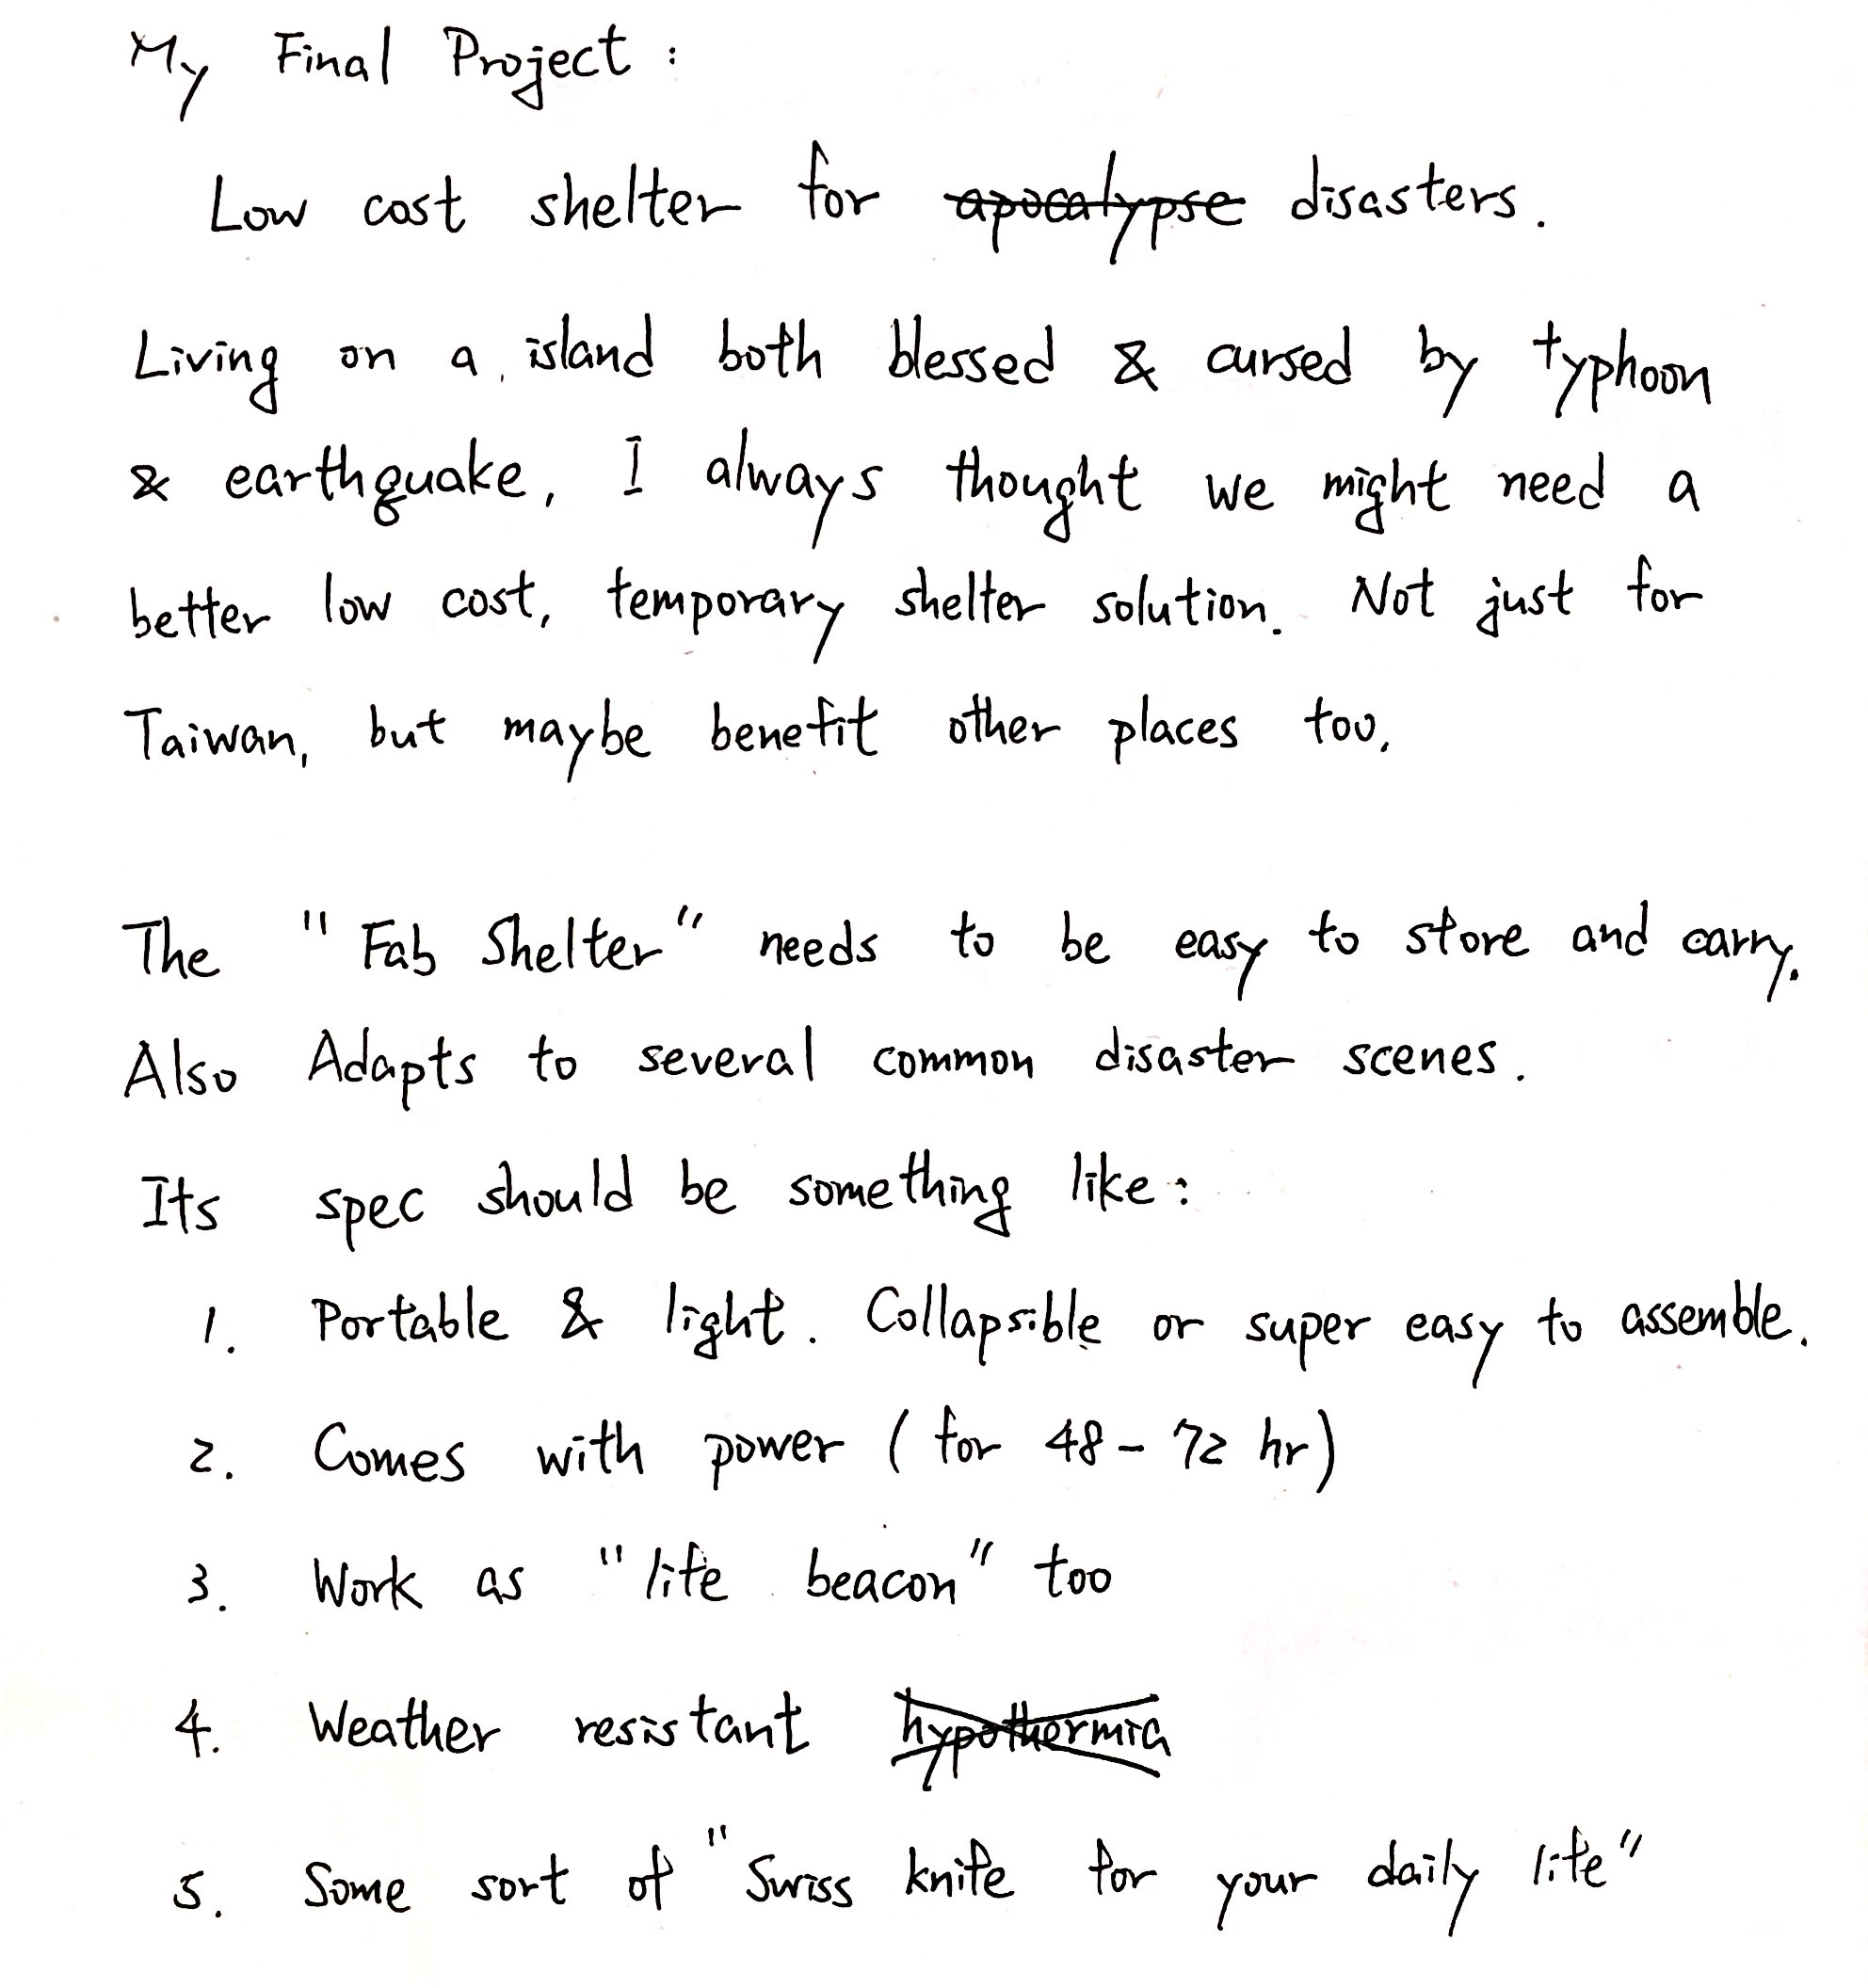 My Final Project :
Low cost shelter for apocalypse disasters.
Living on a island both blessed & cursed by typhoon
& earthquake, I always thought we might need a
better low cost, temporary shelter solution. Not just for
Taiwan, but maybe benefit other places too.
The "Fab Shelter" needs to be easy to store and carry.
Also Adapts to several common disaster scenes.
Its spec should be something like :
1. Portable & light. Collapsible or super easy to assemble.
2. Comes with power ( for 48 - 72 hr )
3. Work as "life beacon" too
4. Weather resistant hypothermia
5. Some sort of "Swiss knife for your daily life"